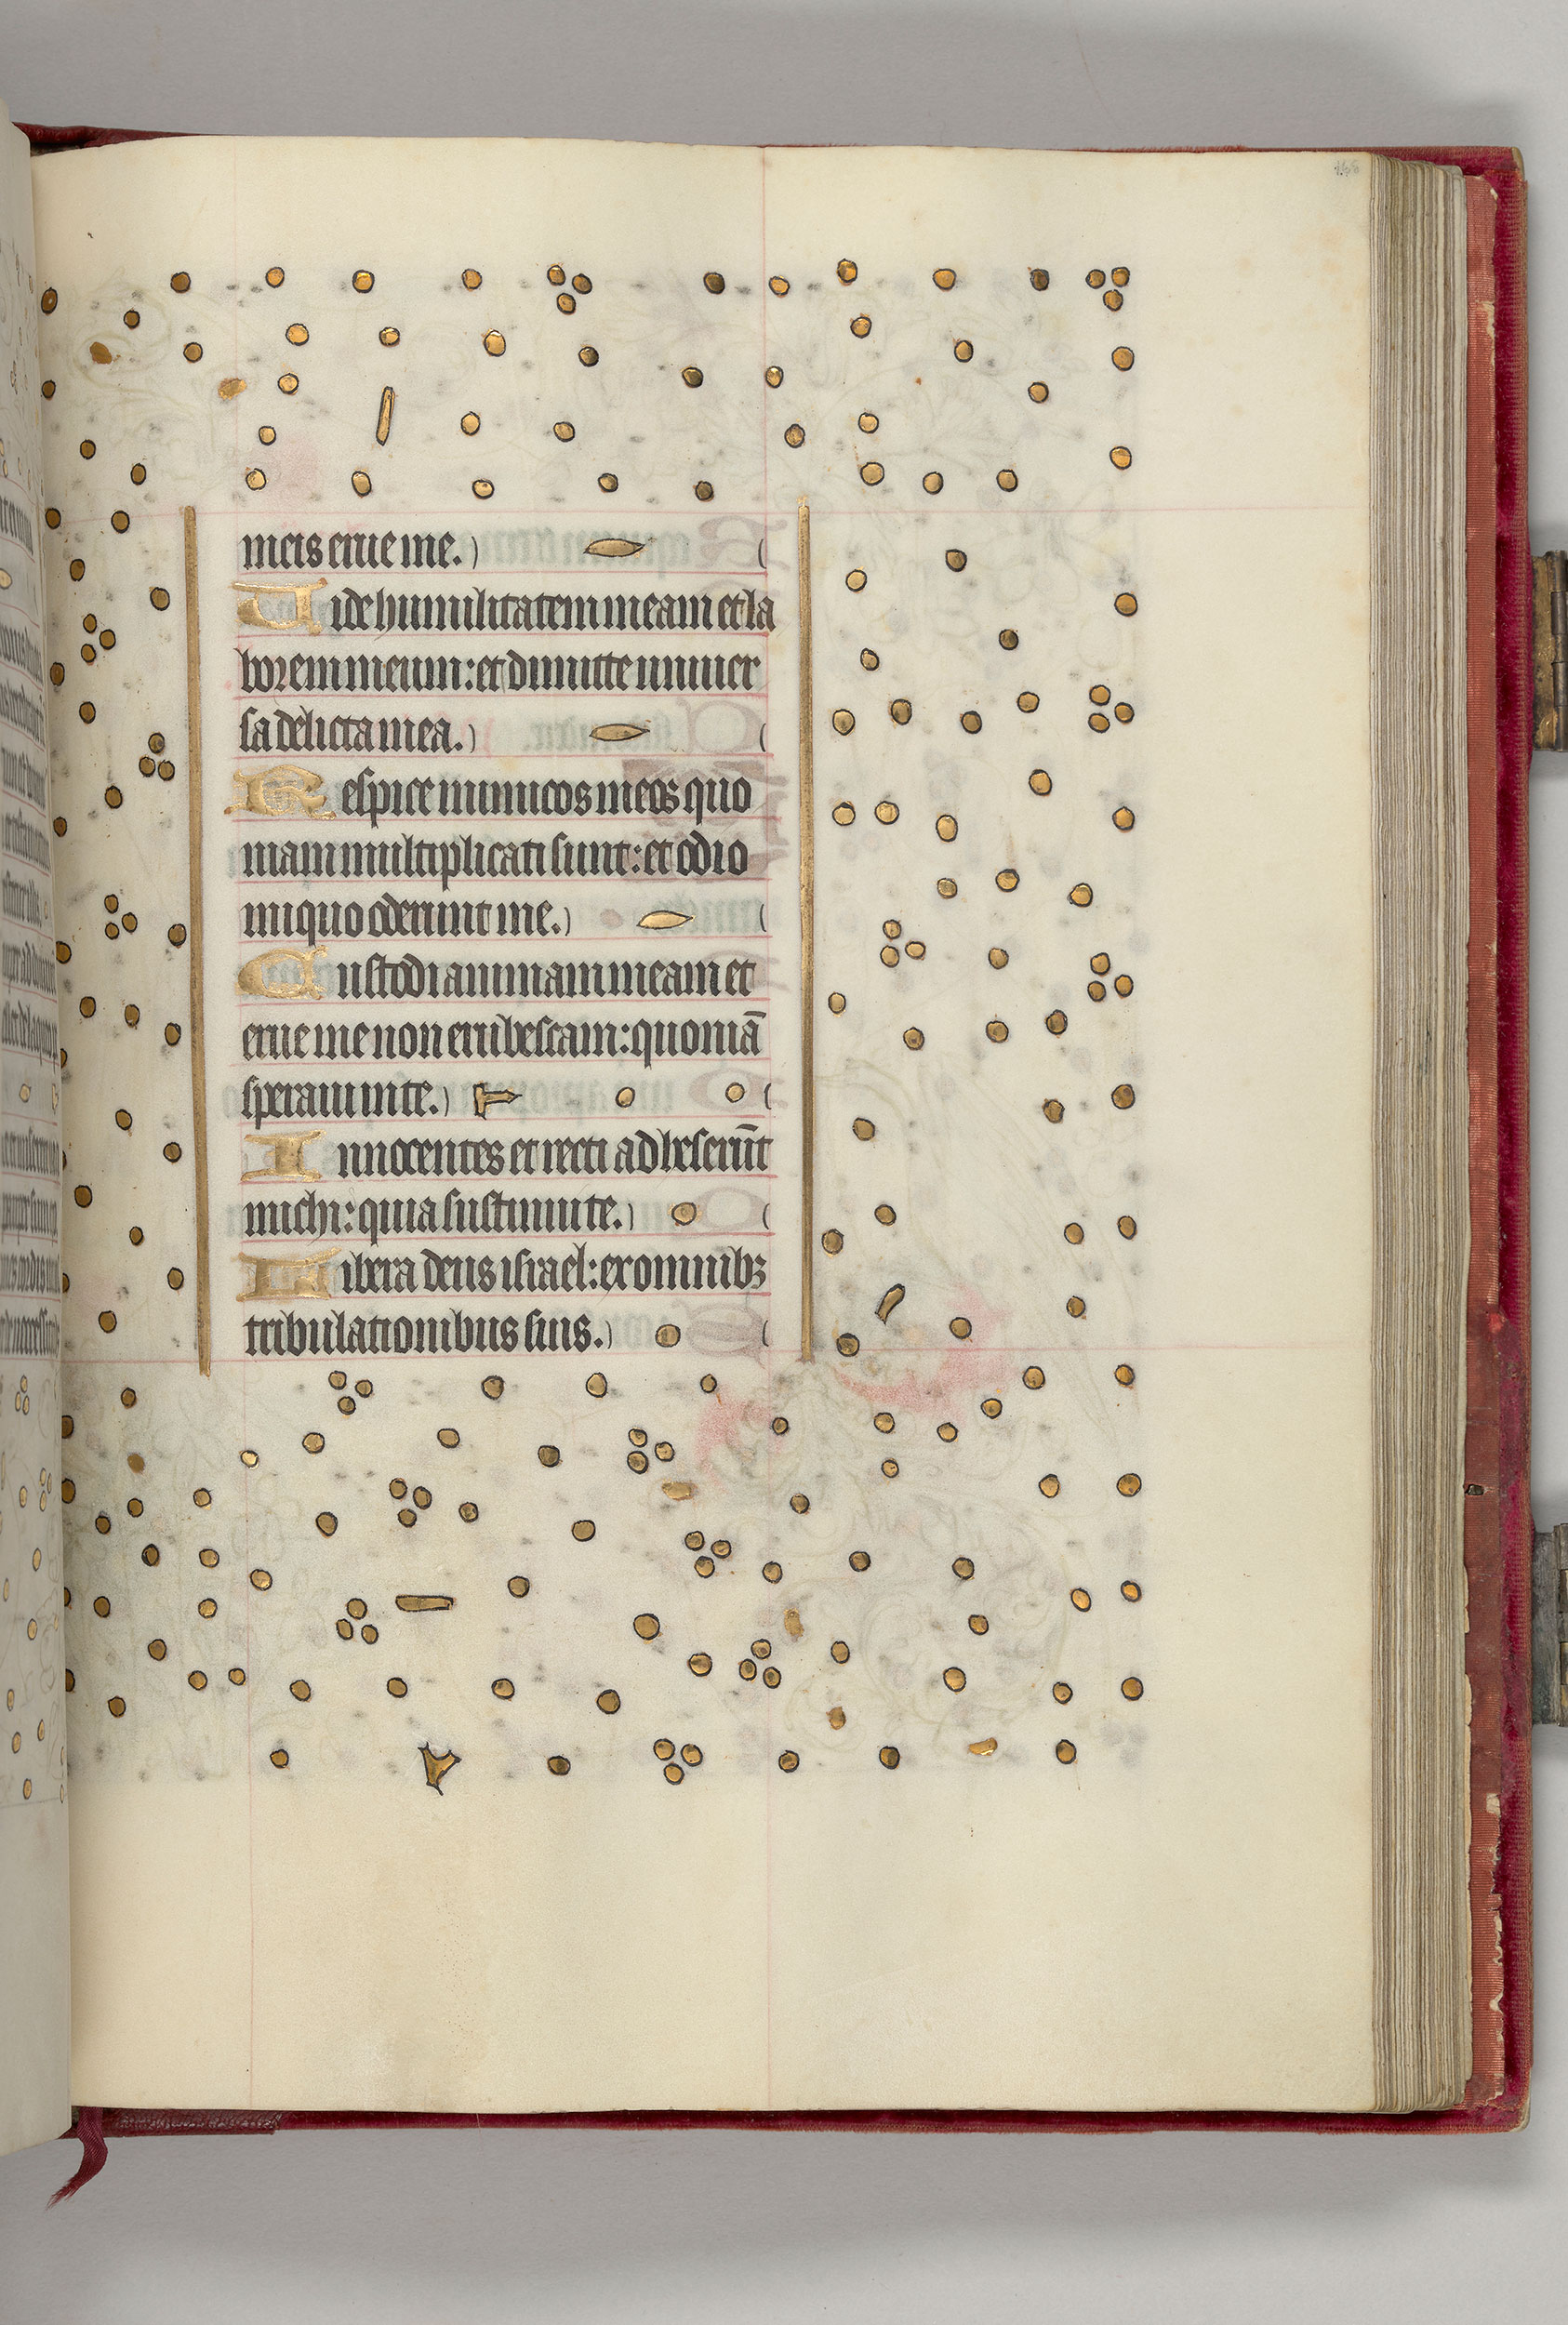 meis erue me.
Vide humilitatem meam et la
borem meum: et dimitte uniuer
sa delicta mea.
Respice inimicos meos quo
niam multiplicati sunt: et odio
iniquo oderunt me.
Custodi animam meam et
erue me non erubescam: quoniā
speraui in te.
Innocentes et recti adheserūt
michi: quia sustinui te.
Libera deus israel: ex omnibꝫ
tribulationibus suis.